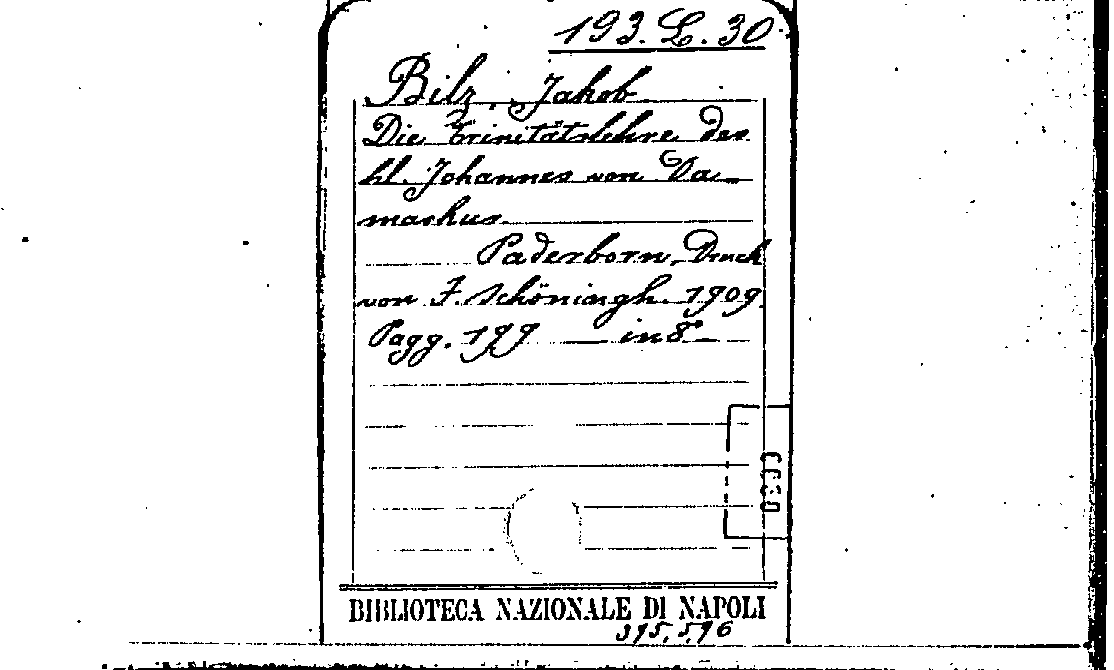 193. L. 30
Bilz, Jakob
Die Trinitätslehre des
hl. Johannes von Da-
maskus.
Paderborn, Druck
von F. Schöningh. 1909.
Pagg. 199 — in 8°
BIBLIOTECA NAZIONALE DI NAPOLI
395,596